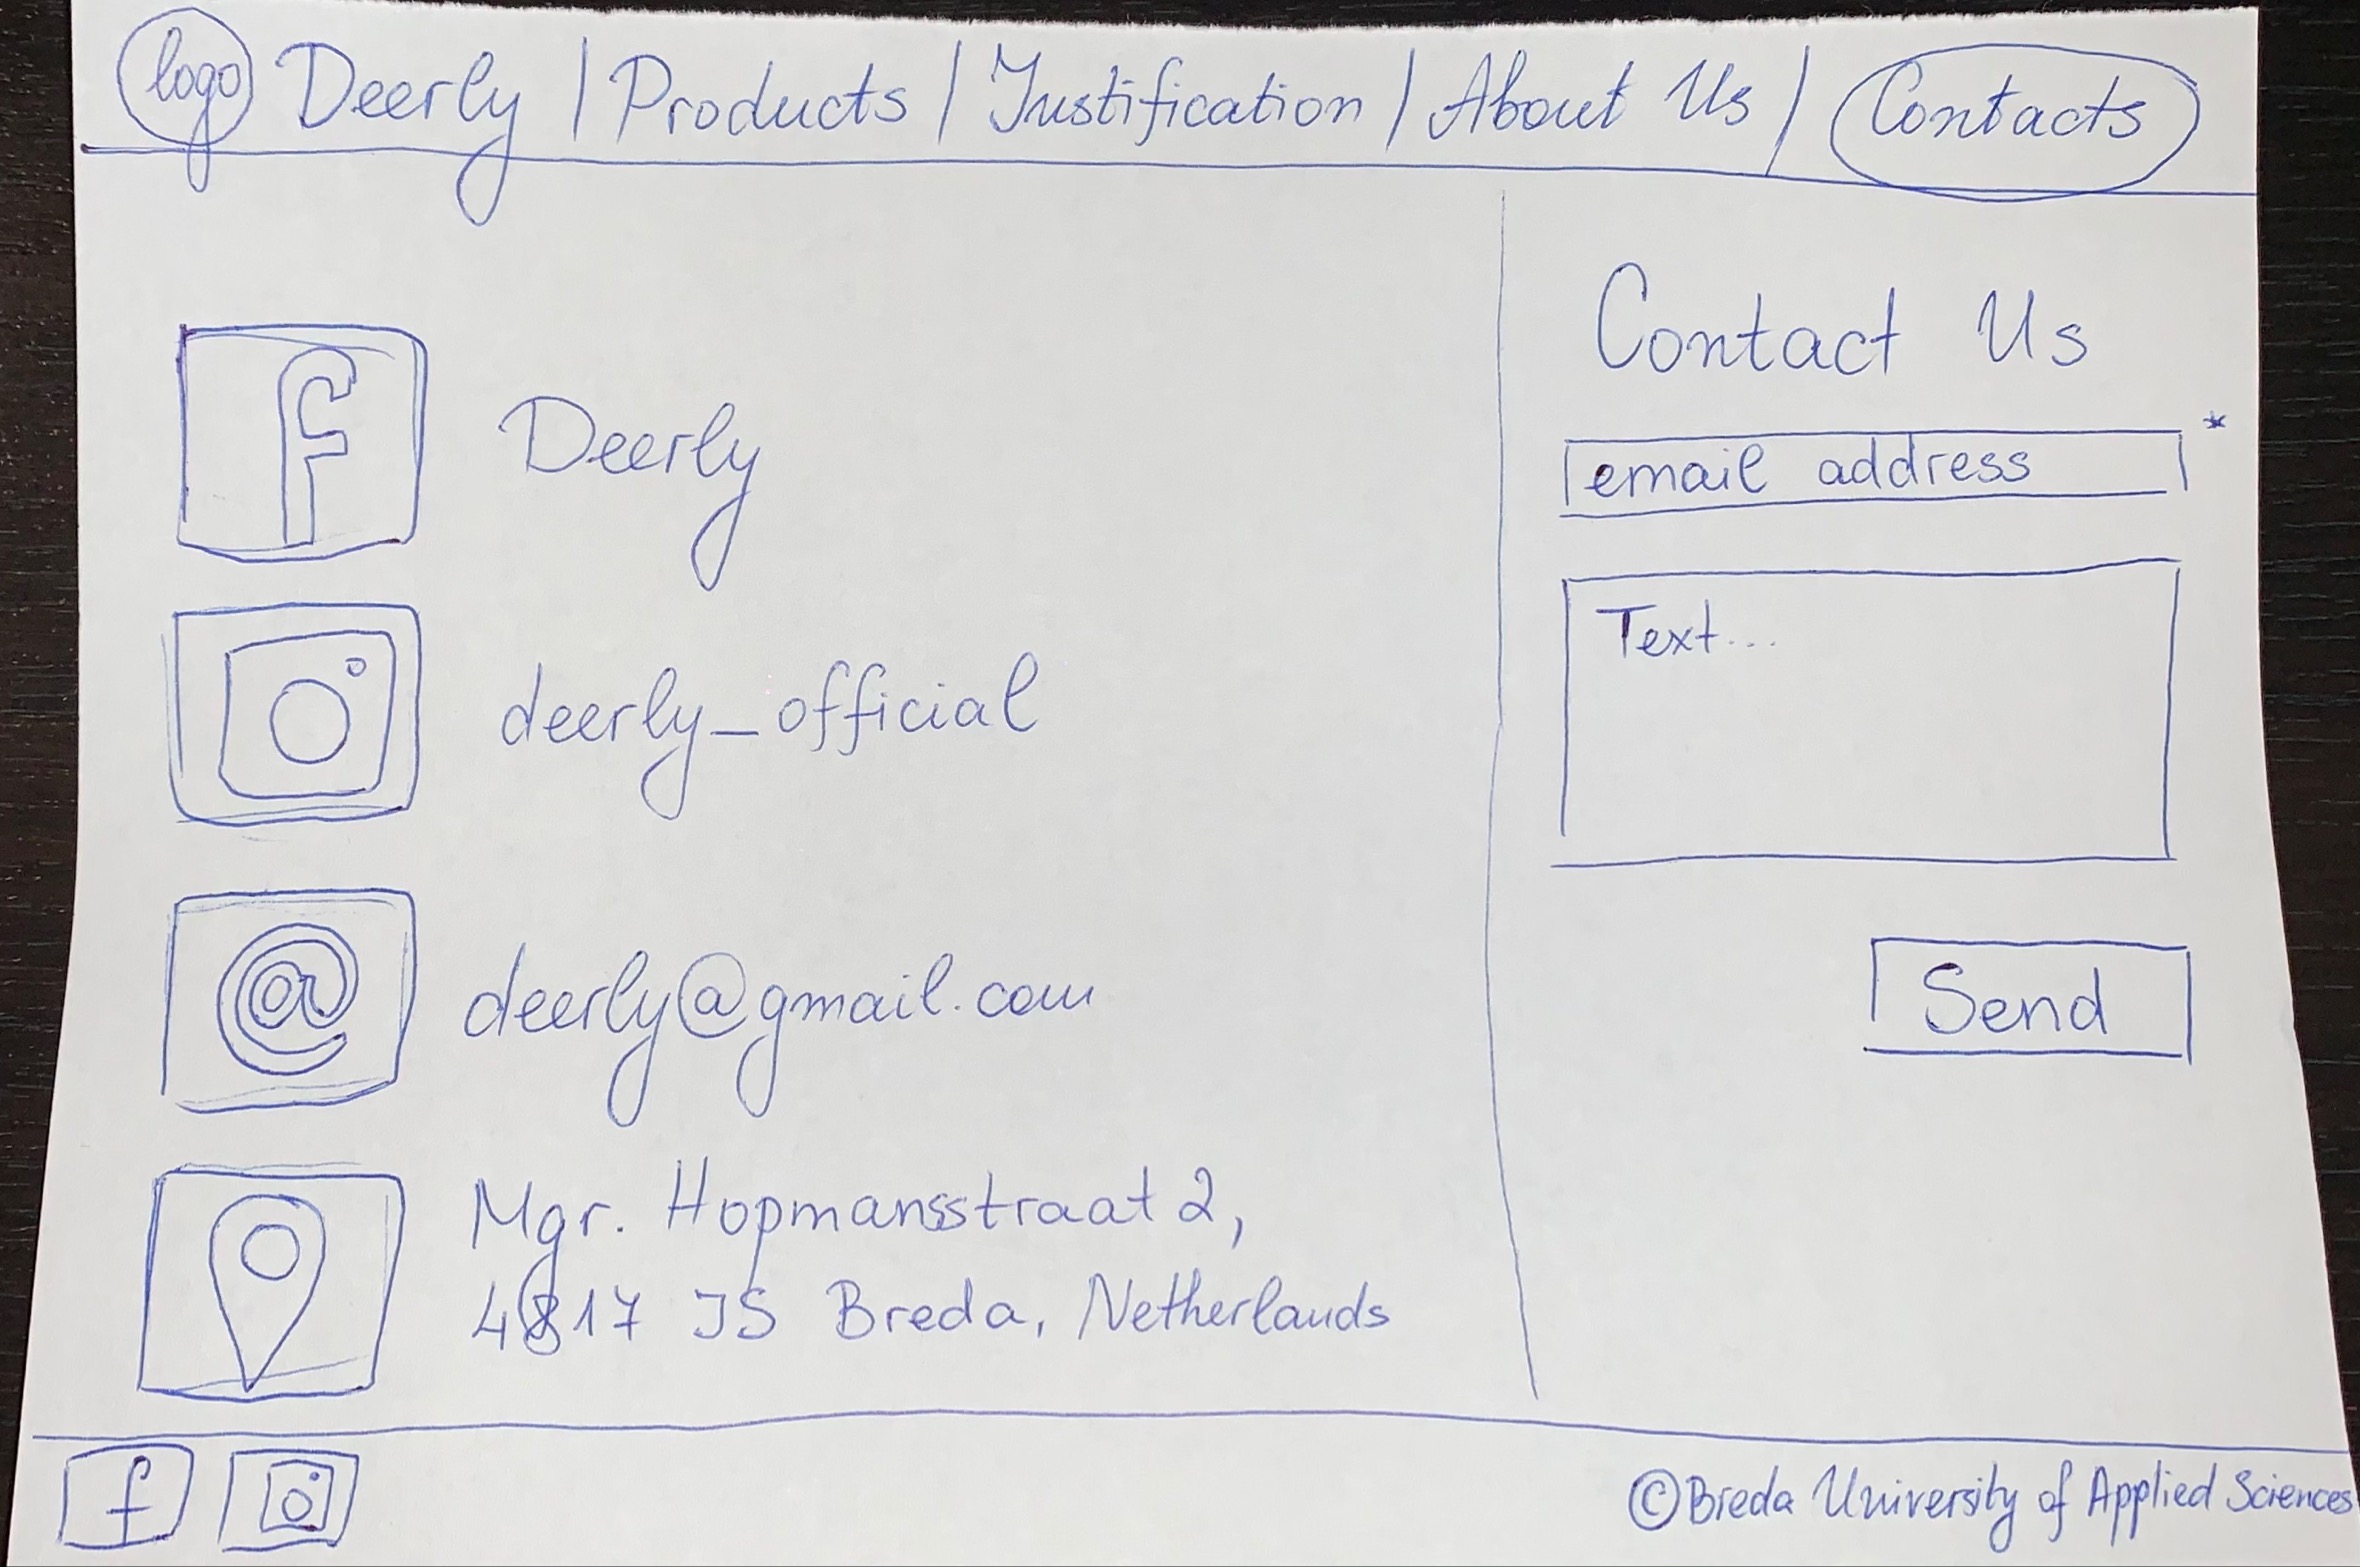 logo Deerly | Products | Justification | About Us | Contacts
Deerly
deerly_official
@
deerly@gmail.com
Mgr. Hopmansstraat 2,
4817 JS Breda, Netherlands
Contact Us
email address *
Text...
Send
f
©Breda University of Applied Sciences